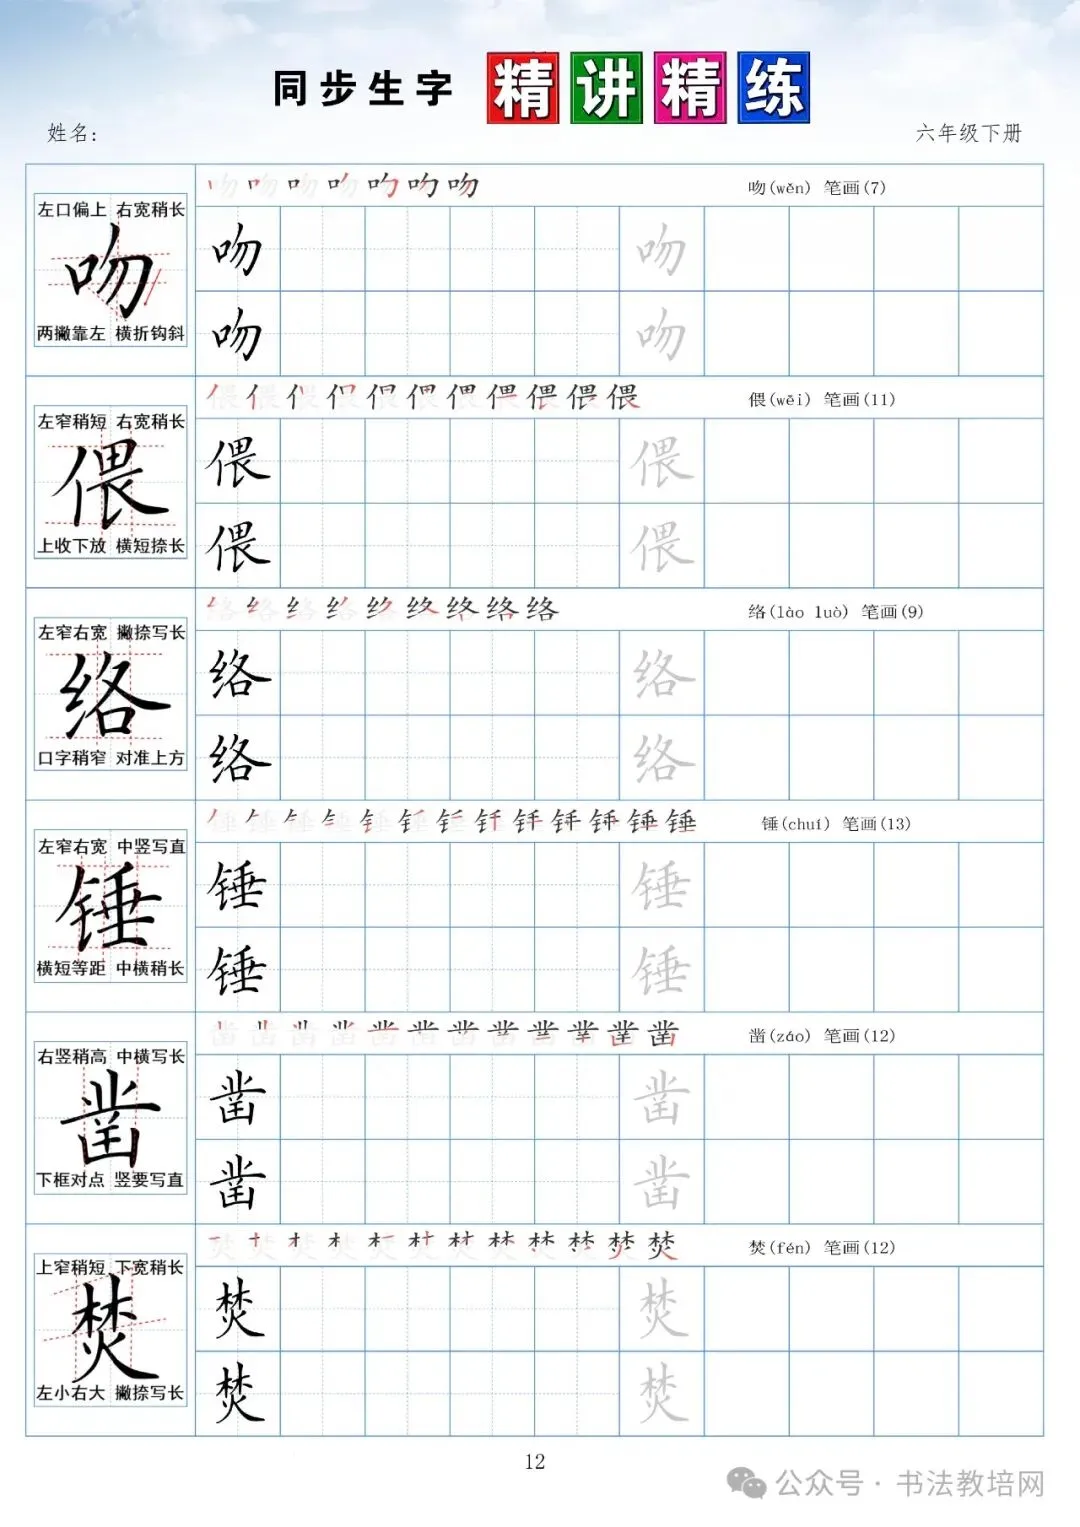 同步生字 精讲精练
姓名:
六年级下册
左口偏上 右宽稍长
吻
两撇靠左 横折钩斜
吻(wěn) 笔画(7)
吻 吻
吻 吻
左窄稍短 右宽稍长
偎
上收下放 横短捺长
偎(wēi) 笔画(11)
偎 偎
偎 偎
左窄右宽 撇捺写长
络
口字稍窄 对准上方
络(lào luò) 笔画(9)
络 络
络 络
左窄右宽 中竖写直
锤
横短等距 中横稍长
锤(chuí) 笔画(13)
锤 锤
锤 锤
右竖稍高 中横写长
凿
下框对点 竖要写直
凿(záo) 笔画(12)
凿 凿
凿 凿
上窄稍短 下宽稍长
焚
左小右大 撇捺写长
焚(fén) 笔画(12)
焚 焚
焚 焚
12
公众号·书法教培网